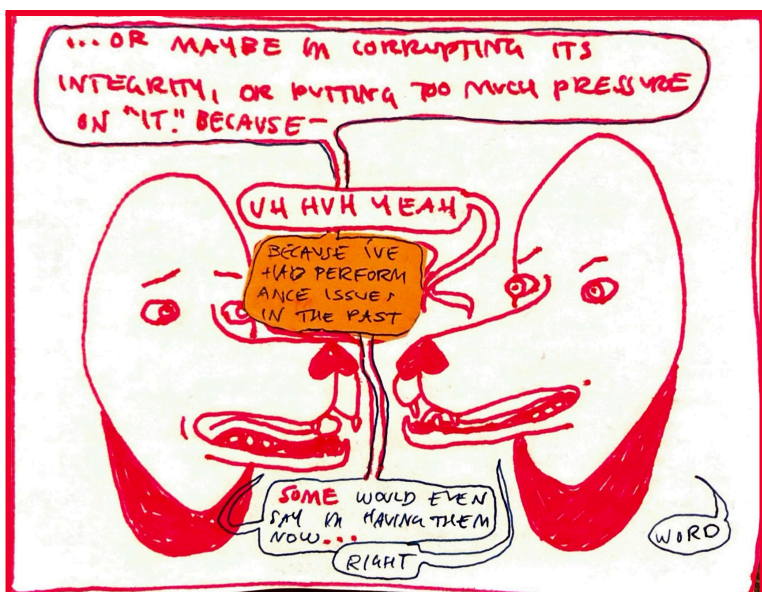 ...OR MAYBE IM CORRUPTING ITS
INTEGRITY, OR PUTTING TOO MUCH PRESSURE
ON "IT." BECAUSE—
UH HUH YEAH
BECAUSE IVE
HAD PERFORM
ANCE ISSUES
IN THE PAST
SOME WOULD EVEN
SAY IM HAVING THEM
NOW...
RIGHT
WORD